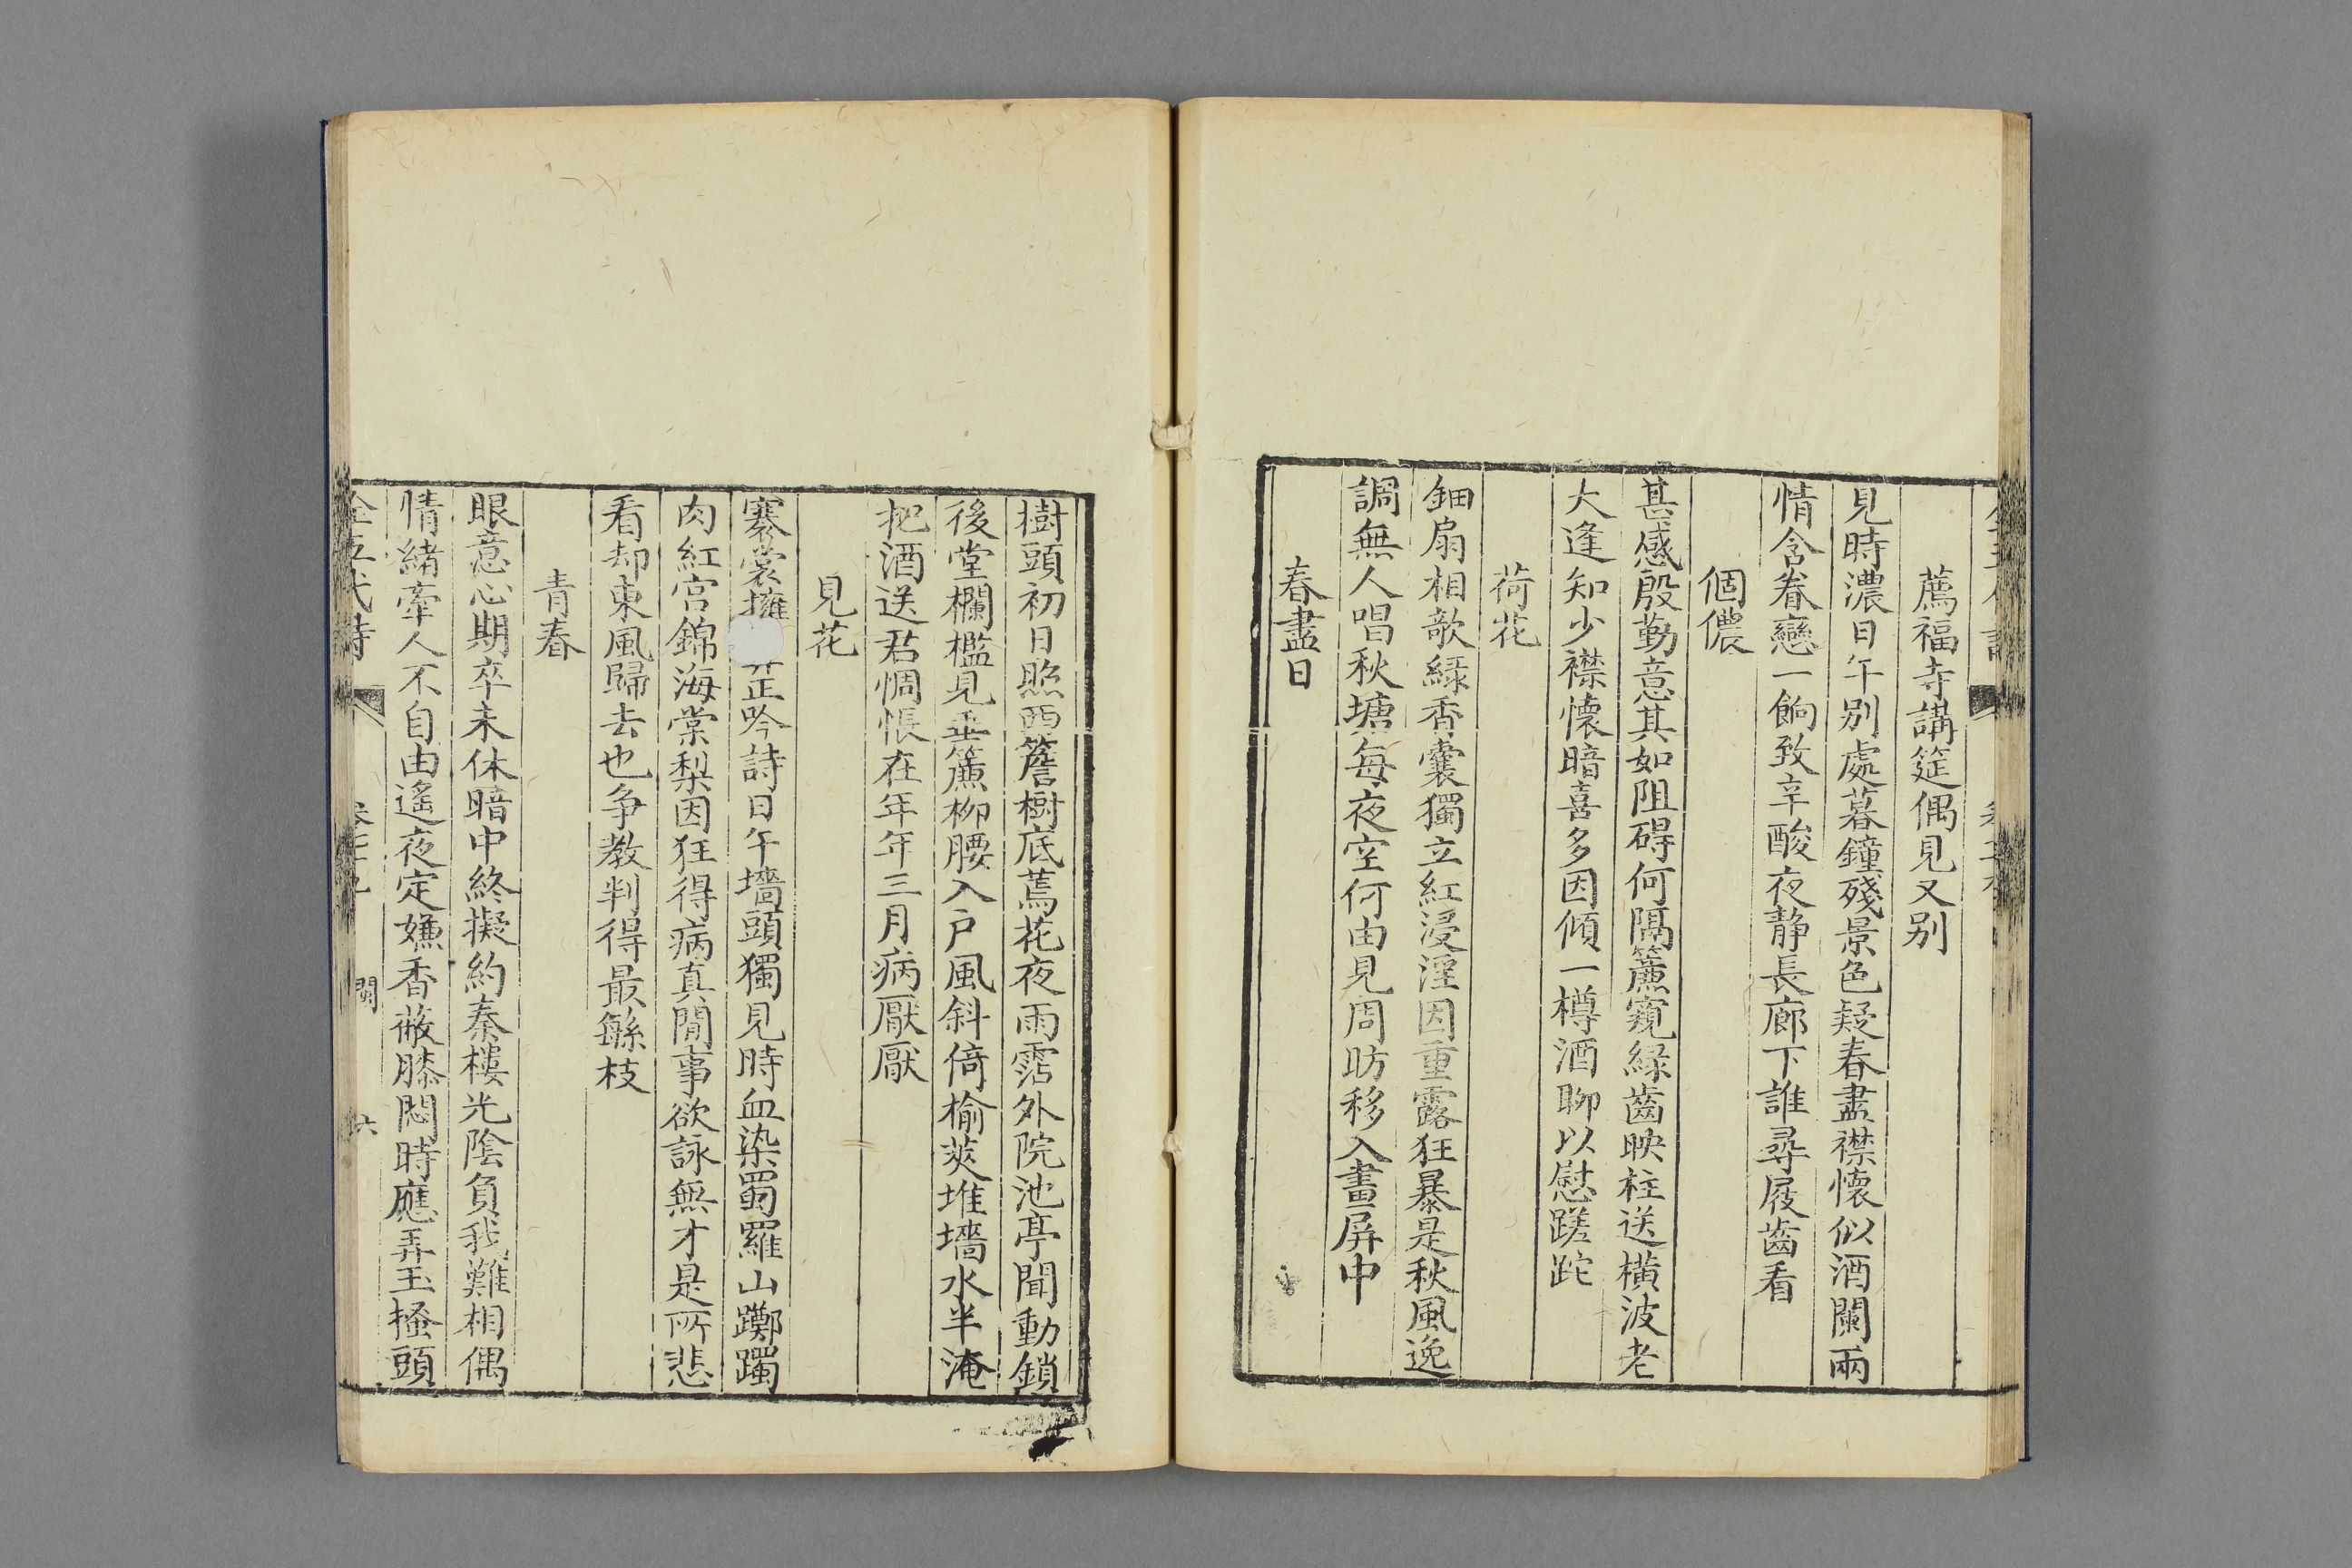 薦福寺講筵偶見又别
見時濃日午别處暮鐘殘景色疑春盡襟懷似酒闌兩
情含眷戀一餉致辛酸夜静長廊下誰尋屐齒看
個儂
甚感殷勤意其如阻碍何隔簾窺緑齒映柱送横波老
大逢知少襟懷暗喜多因傾一樽酒聊以慰蹉跎
荷花
鈿扇相欹緑香囊獨立紅浸淫因重露狂暴是秋風逸
調無人唱秋塘每夜空何由見周昉移入畫屏中
春盡日
樹頭初日照西簷樹底蔫花夜雨霑外院池亭聞動鎖
後堂欄檻見垂簾柳腰入户風斜倚榆莢堆墻水半淹
把酒送君惆悵在年年三月病厭厭
見花
褰裳擁正吟詩日午墻頭獨見時血染蜀羅山躑躅
肉紅宫錦海棠梨因狂得病真閒事欲詠無才是所悲
看却東風歸去也争教判得最繇枝
青春
眼意心期卒未休暗中終擬約秦樓光陰負我難相偶
情緒牽人不自由遙夜定嫌香蔽膝悶時應弄玉搔頭
全五代詩 閩 六